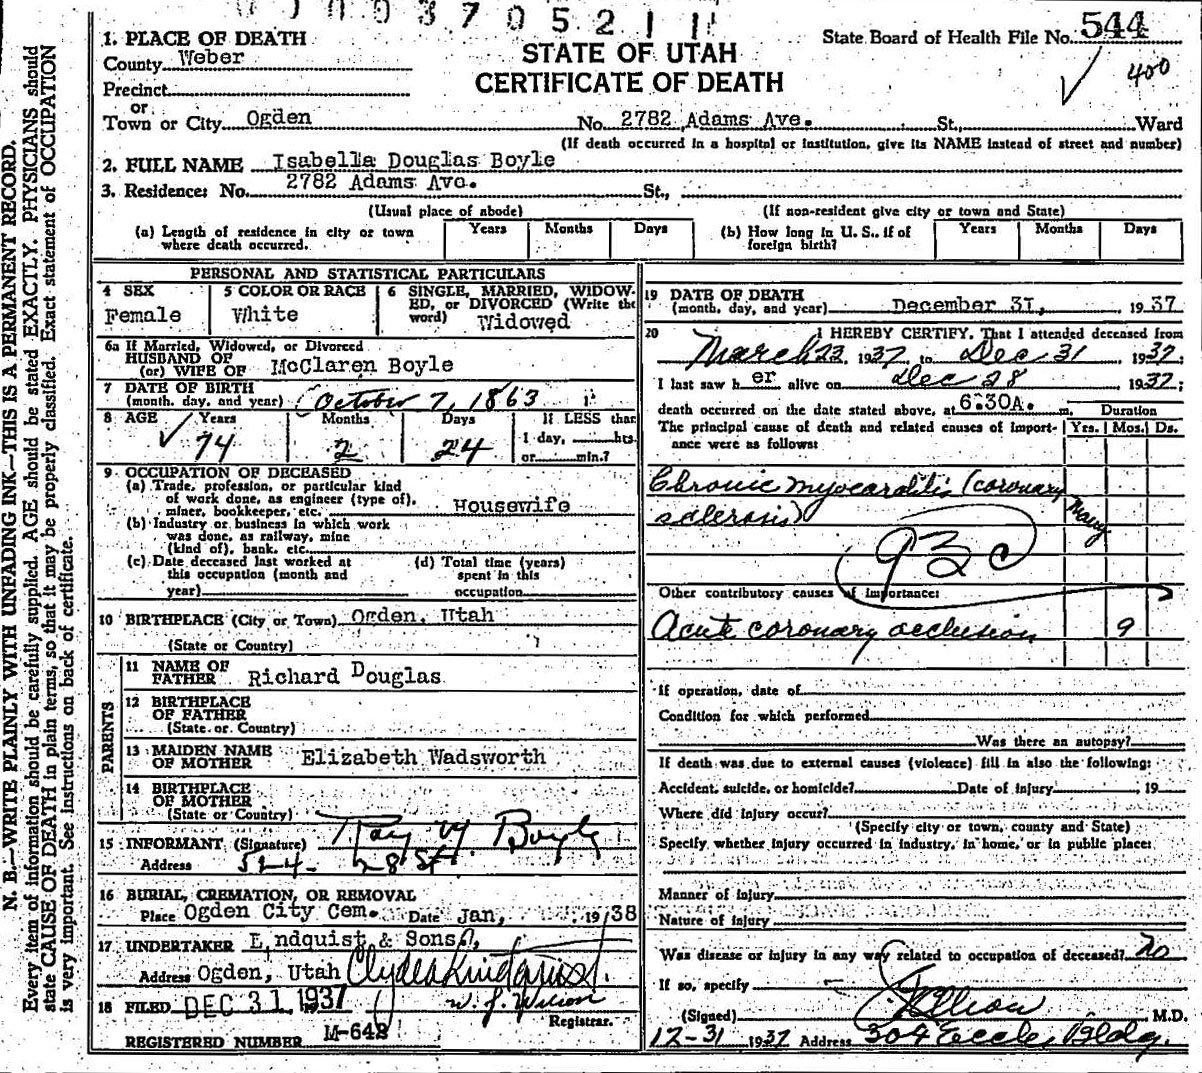 0 0 0 3 7 0 5 2 1 1
1. PLACE OF DEATH
County Weber
Precinct
or
Town or City Ogden
STATE OF UTAH
CERTIFICATE OF DEATH
State Board of Health File No. 544
400
No. 2782 Adams Ave. St., Ward
(If death occurred in a hospital or institution, give its NAME instead of street and number)
2. FULL NAME Isabella Douglas Boyle
3. Residence: No. 2782 Adams Ave. St.,
(Usual place of abode) (If non-resident give city or town and State)
(a) Length of residence in city or town where death occurred. Years Months Days
(b) How long in U. S., if of foreign birth? Years Months Days
PERSONAL AND STATISTICAL PARTICULARS
4 SEX
Female
5 COLOR OR RACE
White
6 SINGLE, MARRIED, WIDOWED, or DIVORCED (Write the word)
Widowed
6a If Married, Widowed, or Divorced
HUSBAND OF
(or) WIFE OF McClaren Boyle
7 DATE OF BIRTH
(month, day, and year) October 7, 1863
8 AGE Years Months Days If LESS than
74 2 24 1 day, hrs.
or min.?
9 OCCUPATION OF DECEASED
(a) Trade, profession, or particular kind
of work done, as engineer (type of),
miner, bookkeeper, etc. Housewife
(b) Industry or business in which work
was done, as railway, mine
(kind of), bank, etc.
(c) Date deceased last worked at
this occupation (month and
year)
(d) Total time (years)
spent in this
occupation
10 BIRTHPLACE (City or Town) Ogden, Utah
(State or Country)
PARENTS
11 NAME OF
FATHER Richard Douglas
12 BIRTHPLACE
OF FATHER
(State or Country)
13 MAIDEN NAME
OF MOTHER Elizabeth Wadsworth
14 BIRTHPLACE
OF MOTHER
(State or Country)
15 INFORMANT (Signature) Ray M. Boyle
Address 524 - 28 St
16 BURIAL, CREMATION, OR REMOVAL
Place Ogden City Cem. Date Jan, 1938
17 UNDERTAKER Lindquist & Sons,
Address Ogden, Utah Clyde Lindquist
18 FILED DEC 31 1937 W. J. Wilson
Registrar.
REGISTERED NUMBER M-648
19 DATE OF DEATH
(month, day, and year) December 31, 1937
20 I HEREBY CERTIFY, That I attended deceased from
March 23, 1937 to Dec 31 1937
I last saw her alive on Dec 28 1937;
death occurred on the date stated above, at 6:30A. m. Duration
The principal cause of death and related causes of importance were as follows: Yrs. Mos. Ds.
Chronic myocarditis (coronary
sclerosis) Many
93c
Other contributory causes of importance:
Acute coronary occlusion 9
If operation, date of
Condition for which performed
Was there an autopsy?
If death was due to external causes (violence) fill in also the following:
Accident, suicide, or homicide? Date of injury , 19
Where did injury occur?
(Specify city or town, county and State)
Specify whether injury occurred in industry, in home, or in public place:
Manner of injury
Nature of injury
Was disease or injury in any way related to occupation of deceased? no
If so, specify
(Signed) M.D.
12-31 1937 Address 304 Eccles Bldg.
N. B.—WRITE PLAINLY WITH UNFADING INK—THIS IS A PERMANENT RECORD.
Every item of information should be carefully supplied. AGE should be stated EXACTLY. PHYSICIANS should
state CAUSE OF DEATH in plain terms, so that it may be properly classified. Exact statement of OCCUPATION
is very important. See instructions on back of certificate.